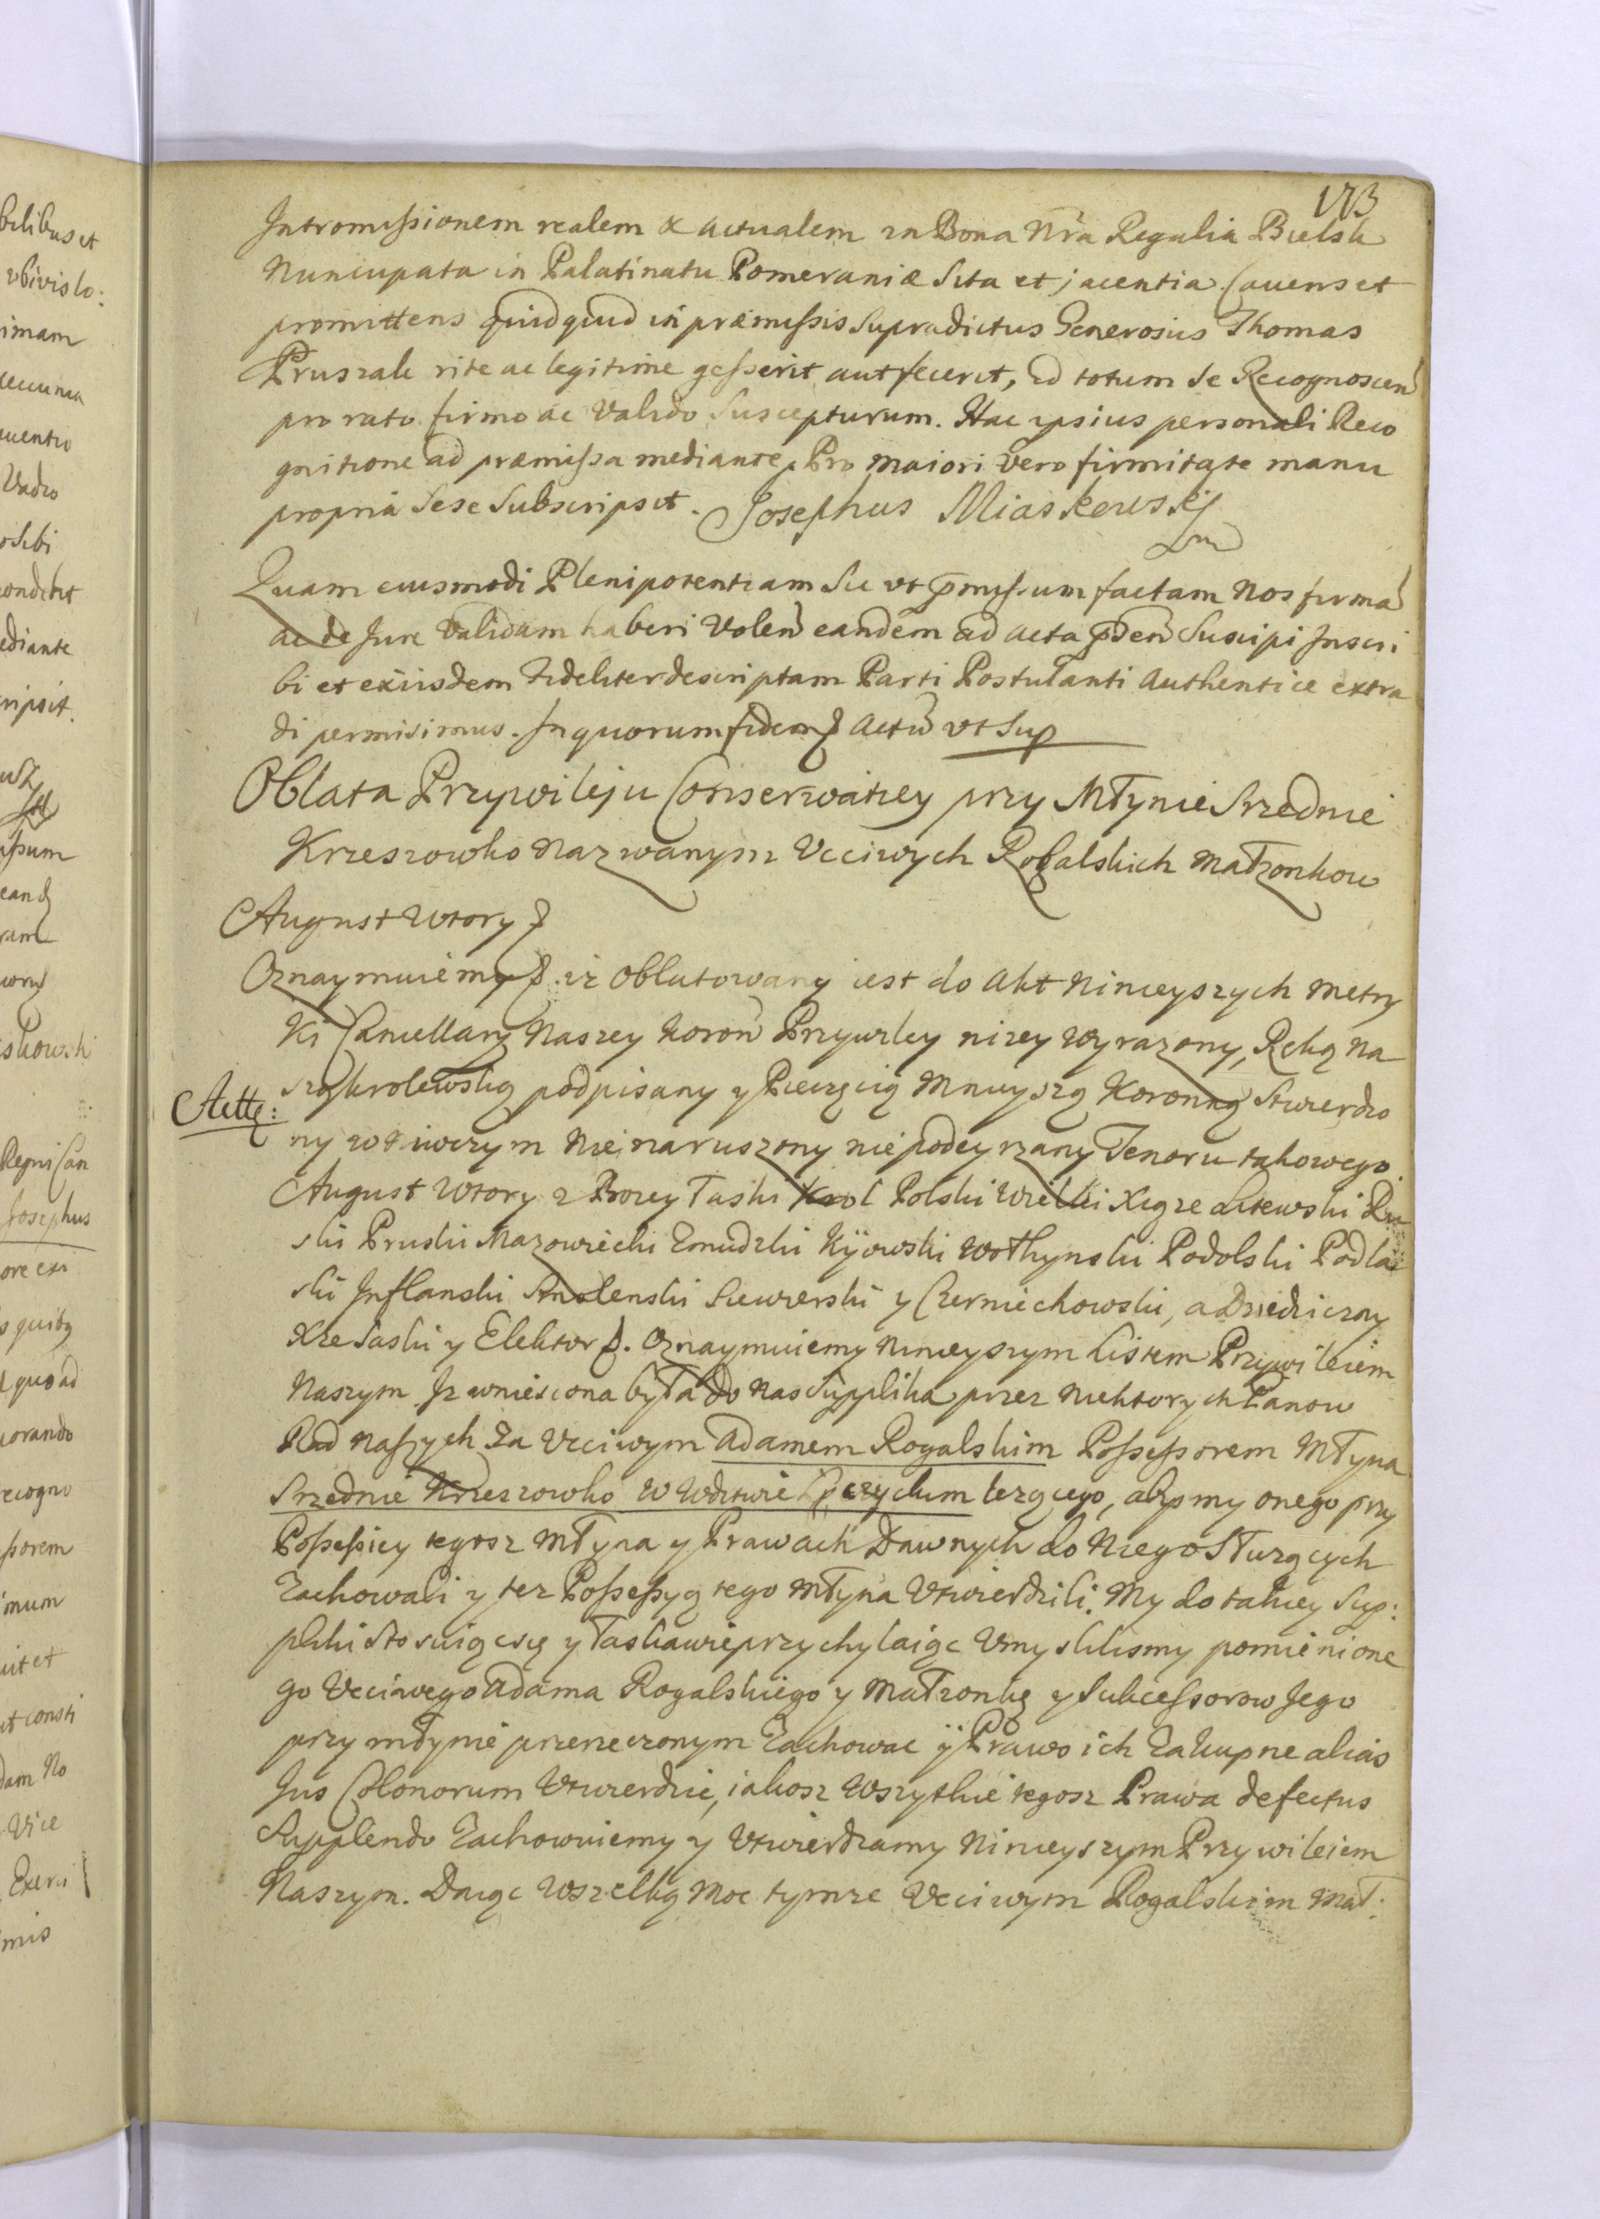 173
Intromissionem realem & actualem in Bona Nra Regalia Bielsk
Nuncupata in Palatinatu Pomeraniæ Sita et jacentia. Cavens et
promittens quidquid in præmissis Supradictus Generosus Thomas
Pruszak rite ac legitime gesserit aut fecerit, id totum Se Recognoscen
pro rato firmo ac Valido Suscepturum. Hac ipsius personali Reco
gnitione ad præmissa mediante, Pro maiori vero firmitate manu
propria Sese Subscripsit. Josephus Miaskowskj
Quam eiusmodi Plenipotentiam Sic vt pmissum factam Nos firma
ac de Jure Validam haberi Volen eandem ad acta pden Suscipi Inscri
bi et exiisdem fideliter descriptam Parti Postulanti Authentice extra
di permisimus. In quorum fidem Actu vt Sup
Oblata Przywileju Conserwatiey przy Młynie Srzednie
Krzeszowko nazwanym Vcciwych Rogalskich małzonkow
August Wtory
Oznaymuiemy iz oblatowany iest do Akt Ninieyszych Metry
Ki Cancellary Naszey Koron Przywiley nizey wyrazony, Ręką Na
szą krolewską podpisany y Pieczęcią Mnieyszą Koronną Stwierdzo
Actt:
ny w niwczym Nie naruszony nie podeyrzany Tenoru takowego.
August Wtory z Bozey Łaski Krol Polski Wielki Xiąze Litewski Ru
ski Pruski Mazowiecki Zmudzki Kijowski Wołhynski Podolski Podla
ski Inflanski Smolenski Siewierski y Czerniechowski, a Dziedziczny
Xze Saski y Elektor. Oznaymuiemy Ninieyszym Listem Przywileiem
Naszym Iz wniesiona była do Nas Supplika przez Niektorych Panow
Rad naszych Za Vcciwym Adamem Rogalskim Possessorem Młyna
Srzednie Krzeszowko W Wdztwie łęczyckim lezącego, abysmy onego przy
Possessiey tegosz młyna y Prawach Dawnych do Niego Słuzących
Zachowali y tez Possessyą tego młyna Vtwierdzili. My do takiey Sup:
pliki Stosuiąc się y Łaskawie przychylaiąc Vmyslilismy pomienione
go Vcciwego Adama Rogalskiego y małzonkę y Sukcessorow Iego
przy młynie przerzeczonym Zachowac ÿ Prawo ich Zakupne alias
Jus Colonorum Vtwierdzic, iakosz Wszytkie tegosz Prawa defectus
Supplendo Zachowuiemy y Vtwierdzamy Ninieyszym Przywileiem
Naszym. Daiąc Wszelką moc tymze Vcciwym Rogalskim mał: